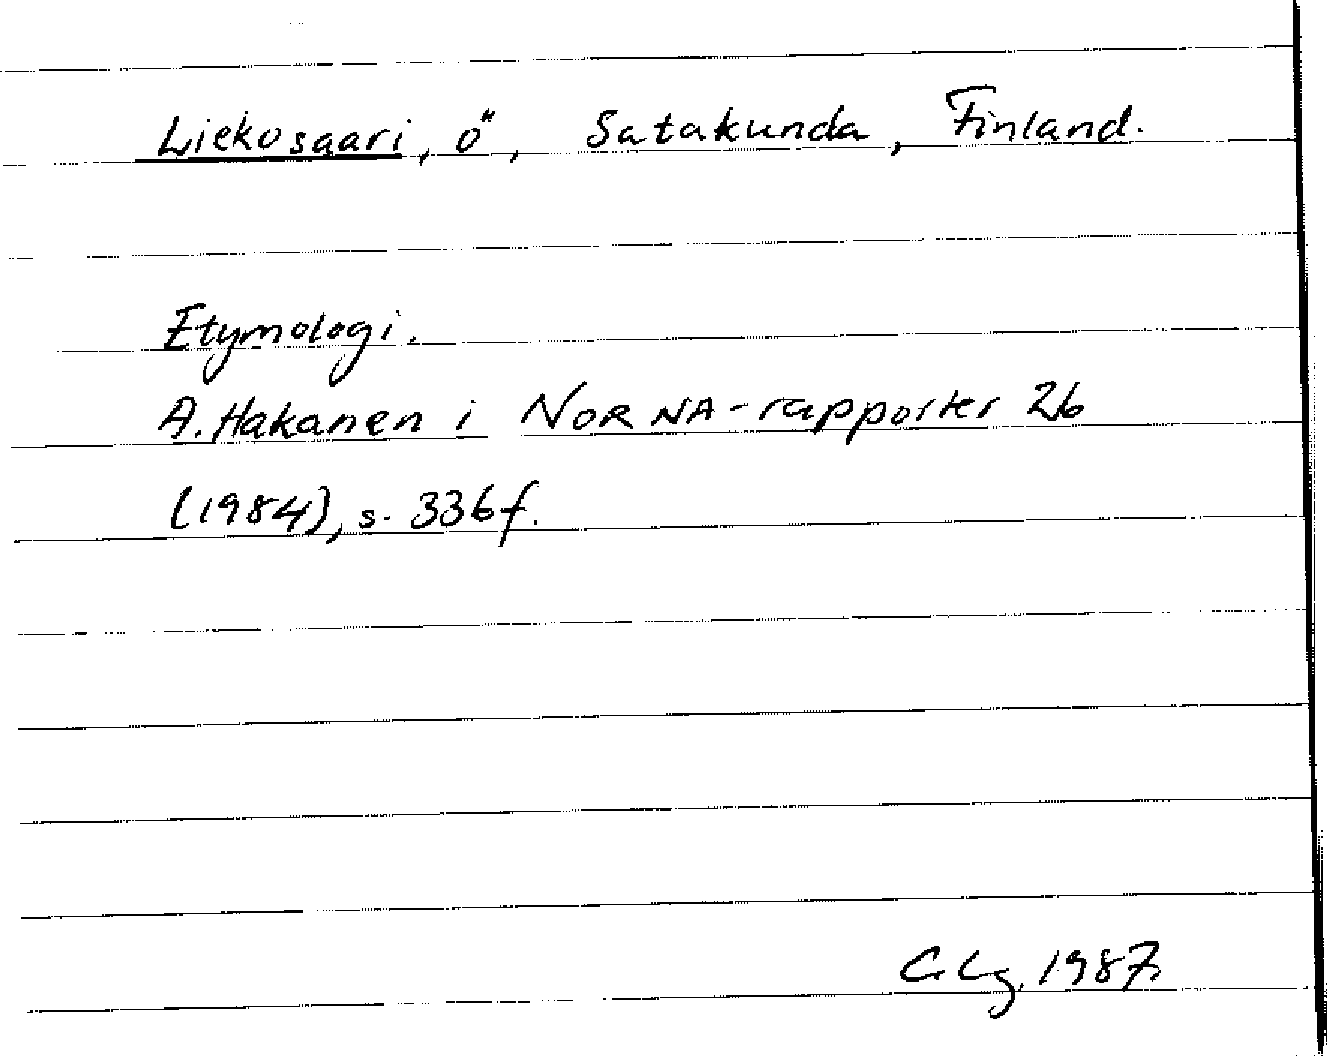 Liekosaari, ö, Satakunda, Finland.
Etymologi.
A. Hakanen i NORNA-rapporter 26
(1984), s. 336 f.
C. Lg. 1987.